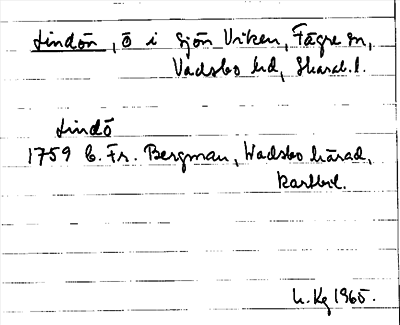 Lindön, ö i sjön Viken, Fägre sn,
Vadsbo hd, Skarab.l.
Lindö
1759 C. Fr. Bergman, Wadsbo härad,
kartbil.
h. Kg 1965.